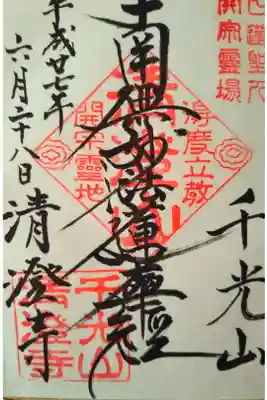 日蓮聖人
開宗霊場
千光山
南無妙法蓮華經
平成廿七年
六月二十八日
清澄寺
慶立教
開宗靈地
千光山
清澄寺